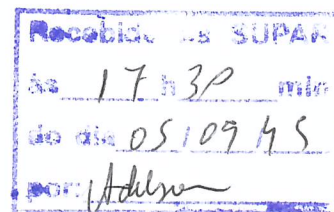 Recebido as SUPAR
às 17 h 30 min
do dia 05/09/15
por: Adelson